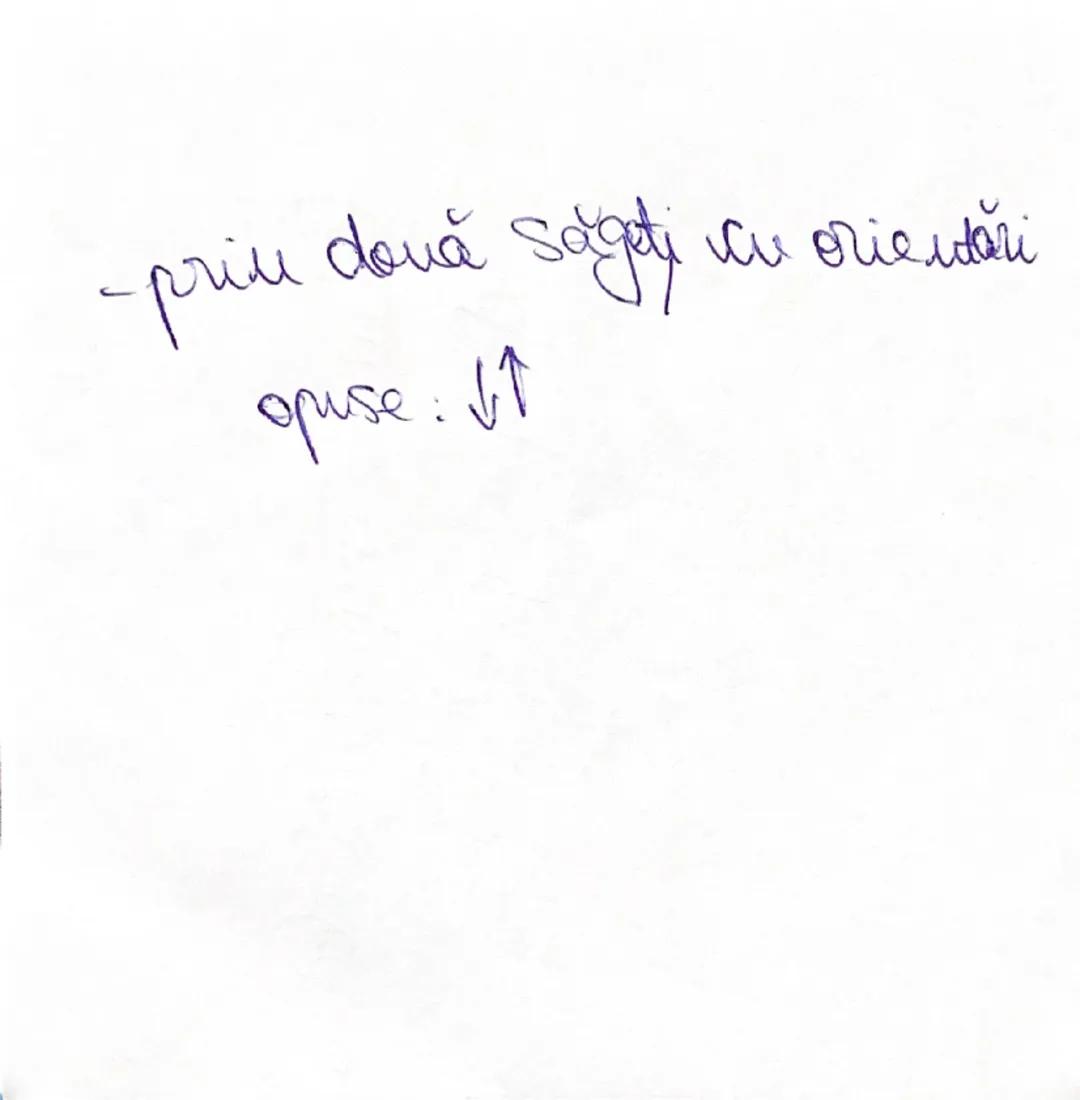 - prin două săgeți cu orientări
opuse : ↓↑